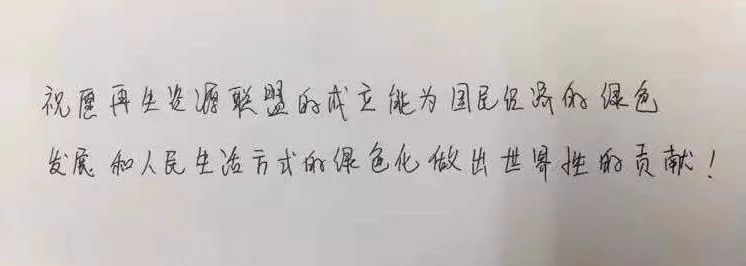 祝愿再生资源联盟的成立能为国民经济的绿色
发展和人民生活方式的绿色化做出世界性的贡献！